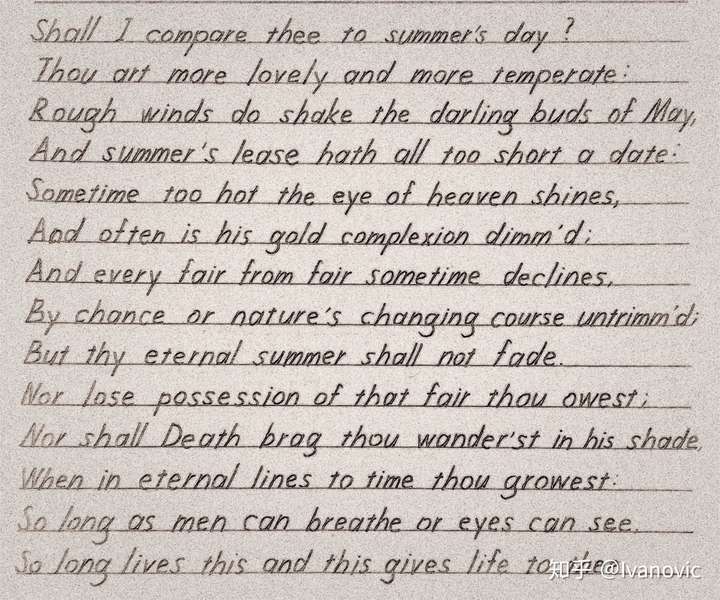 Shall I compare thee to summer's day ?
Thou art more lovely and more temperate:
Rough winds do shake the darling buds of May,
And summer's lease hath all too short a date:
Sometime too hot the eye of heaven shines,
And often is his gold complexion dimm'd;
And every fair from fair sometime declines,
By chance or nature's changing course untrimm'd;
But thy eternal summer shall not fade.
Nor lose possession of that fair thou owest;
Nor shall Death brag thou wander'st in his shade,
When in eternal lines to time thou growest:
So long as men can breathe or eyes can see.
So long lives this and this gives life to thee
知乎 @Ivanovic